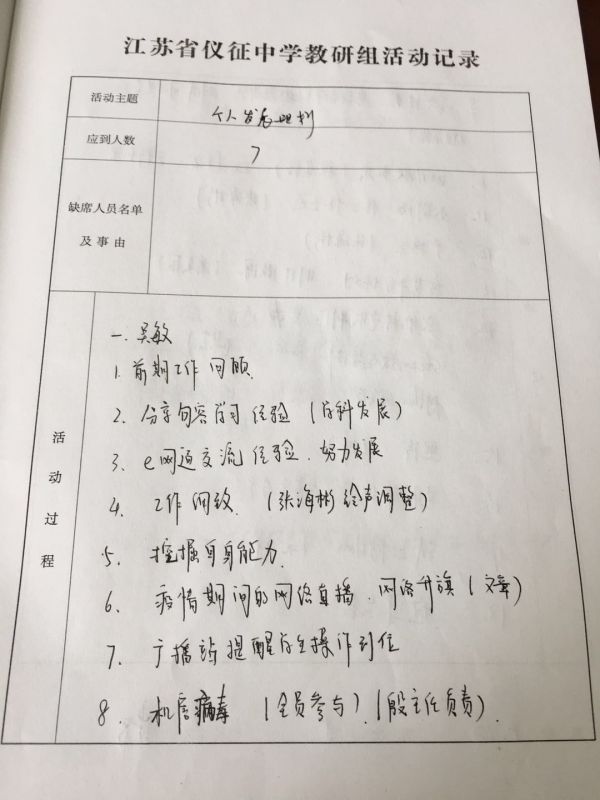 江苏省仪征中学教研组活动记录
活动主题
个人发展规划
应到人数
7
缺席人员名单
及事由
活动过程
一. 吴敏
1. 前期工作回顾
2. 分享句容学习经验 (学科发展)
3. e网通交流经验. 努力发展
4. 工作细致. (张海彬绘声调整)
5. 挖掘自身能力.
6. 疫情期间的网络直播. 网络升旗 (文章)
7. 广播站提醒学生操作到位
8. 机房病毒 (全员参与). (殷主任负责).